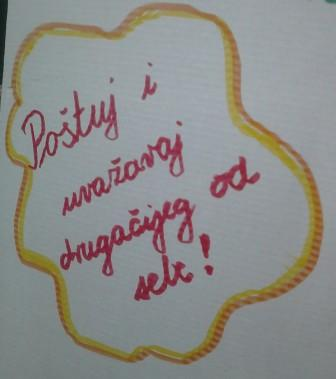 Poštuj i
uvažavaj
drugačijeg od
sebe!